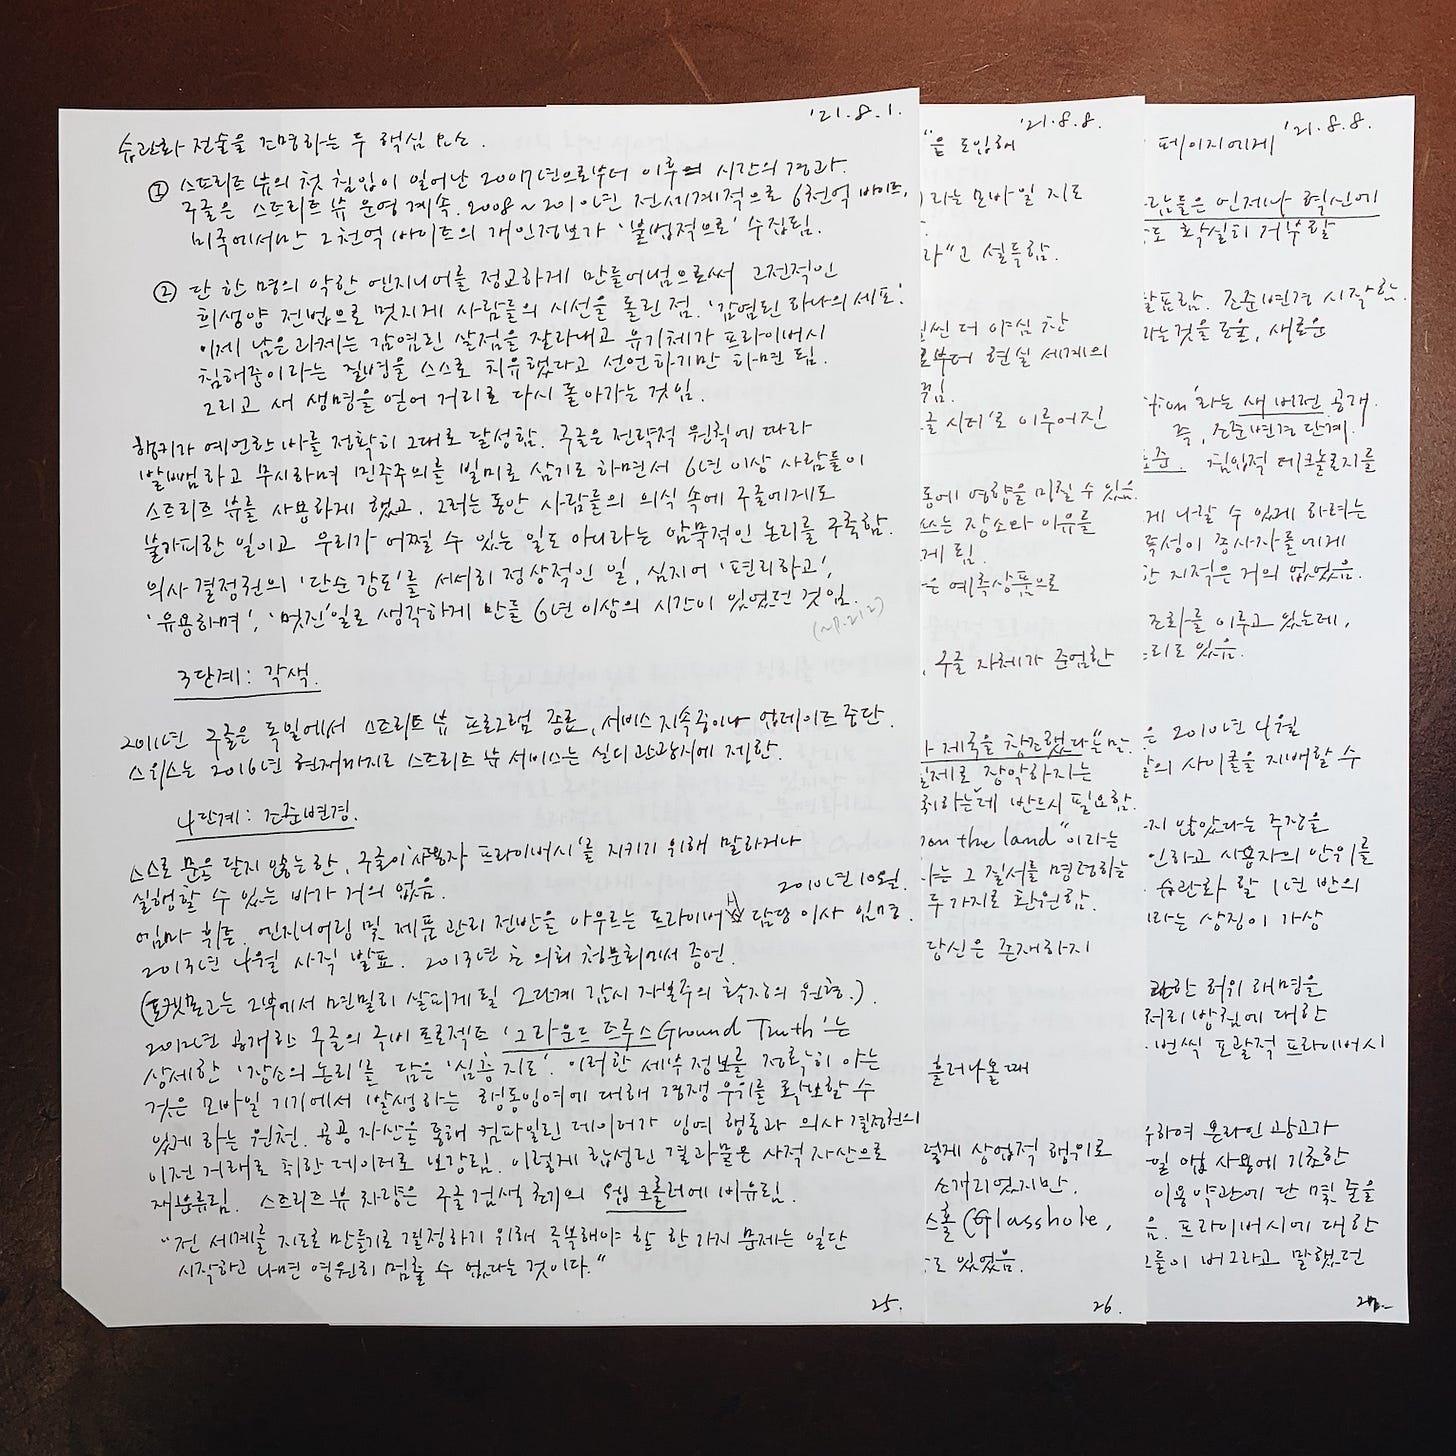 '21.8.1.
습관화 전술을 견명하는 두 핵심 요소.
① 스트리트 뷰의 첫 침입이 일어난 2007년으로부터 이후 시간의 경과.
구글은 스트리트 뷰 운영 계속. 2008~2010년 전세계적으로 6천억 바이트,
미국에서만 2천억 바이트의 개인정보가 '불법적으로' 수집됨.
② 단 한 명의 악한 엔지니어를 정교하게 만들어냄으로써 고전적인
희생양 전법으로 멋지게 사람들의 시선을 돌린 점. '감염된 하나의 세포'.
이제 남은 과제는 감염된 살점을 잘라내고 유기체가 프라이버시
침해중이라는 질병을 스스로 치유했다고 선언하기만 하면 됨.
그리고 새 생명을 얻어 거리로 다시 돌아가는 것임.
행키가 예언한 바를 정확히 그대로 달성함. 구글은 전략적 원칙에 따라
발뺌하고 무시하며 민주주의를 빌미로 삼기도 하면서 6년 이상 사람들이
스트리트 뷰를 사용하게 했고. 그러는 동안 사람들의 의식 속에 구글에게도
불가피한 일이고 우리가 어쩔 수 있는 일도 아니라는 암묵적인 논리를 구축함.
의사결정권의 '단순 강도'를 서서히 정상적인 일, 심지어 '편리하고',
'유용하며', '멋진'일로 생각하게 만들 6년 이상의 시간이 있었던 것임.
(~p.212)
3단계: 각색.
2011년 구글은 독일에서 스트리트 뷰 프로그램 종료, 서비스 지속중이나 업데이트 중단.
스위스는 2016년 현재까지도 스트리트 뷰 서비스는 실외 관광지에 제한.
4단계: 조준변경.
스스로 문을 닫지 않는 한, 구글이 '사용자 프라이버시'를 지키기 위해 말하거나
실행할 수 있는 바가 거의 없음.
2010년 10월.
엠마 휘튼. 엔지니어링 및 제품 관리 전반을 아우르는 프라이버시 담당 이사 임명.
2013년 4월 사직 발표. 2013년 초 의회 청문회에서 증언.
(포켓몬고는 2부에서 면밀히 살피게 될 2단계 감시 자본주의 확장의 원형.)
2012년 공개한 구글의 국비 프로젝트 '그라운드 트루스Ground Truth'는
상세한 '장소의 논리'를 담은 '심층 지도'. 이러한 세부 정보를 정확히 아는
것은 모바일 기기에서 발생하는 행동잉여에 대해 경쟁 우위를 확보할 수
있게 하는 원천. 공공 자산을 통해 컴파일된 데이터가 잉여 행동과 의사 결정권의
이전 거래로 취한 데이터로 보강됨. 이렇게 합성된 결과물은 사적 자산으로
재분류됨. 스트리트 뷰 차량은 구글 검색 초기의 웹 크롤러에 비유됨.
"전 세계를 지도로 만들기로 결정하기 위해 극복해야 할 한 가지 문제는 일단
시작하고 나면 영원히 멈출 수 없다는 것이다."
25.
'21.8.8.
"을 도입해
라는 모바일 지도
라"고 설득함.
씬 더 야심 찬
로부터 현실 세계의
글 시티'로 이루어진
동에 영향을 미칠 수 있음.
쓰는 장소와 이유를
게 됨.
은 예측상품으로
, 구글 자체가 준엄한
제국을 창조했다"는 말.
실제로 장악하지는
하는데 반드시 필요함.
on the land"이라는
는 그 질서를 명령하는
두 가지로 환원함.
당신은 존재하지
흘러나올 때
렇게 상업적 행위로
소개되었지만,
스홀(Glasshole,
도 있었음.
26.
'21.8.8.
페이지에게
람들은 언제나 혁신에
도 확실히 거부할
발표함. 조준변경 시작함.
라는것을 도울, 새로운
tion'라는 새 버전 공개.
즉, 조준변경 단계.
침입적 테크놀로지를
게 나갈 수 있게 하려는
폭성이 종사자들에게
한 지적은 거의 없었음.
조화를 이루고 있는데,
리도 있음.
은 2010년 4월
의 사이클을 지배할 수
지 않았다는 주장을
인하고 사용자의 안위를
습관화 할 1년 반의
라는 상징이 가상
관한 허위 해명을
처리 방침에 대한
번씩 포괄적 프라이버시
하여 온라인 광고가
일 앱 사용에 기초한
이용약관에 단 몇 줄을
음. 프라이버시에 대한
그들이 버그라고 말했던